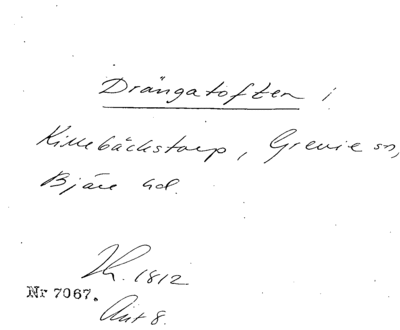 Drängatoften i
Killebäckstorp, Grevie sn,
Bjäre hd.
1812
Nr 7067.
Akt 8.